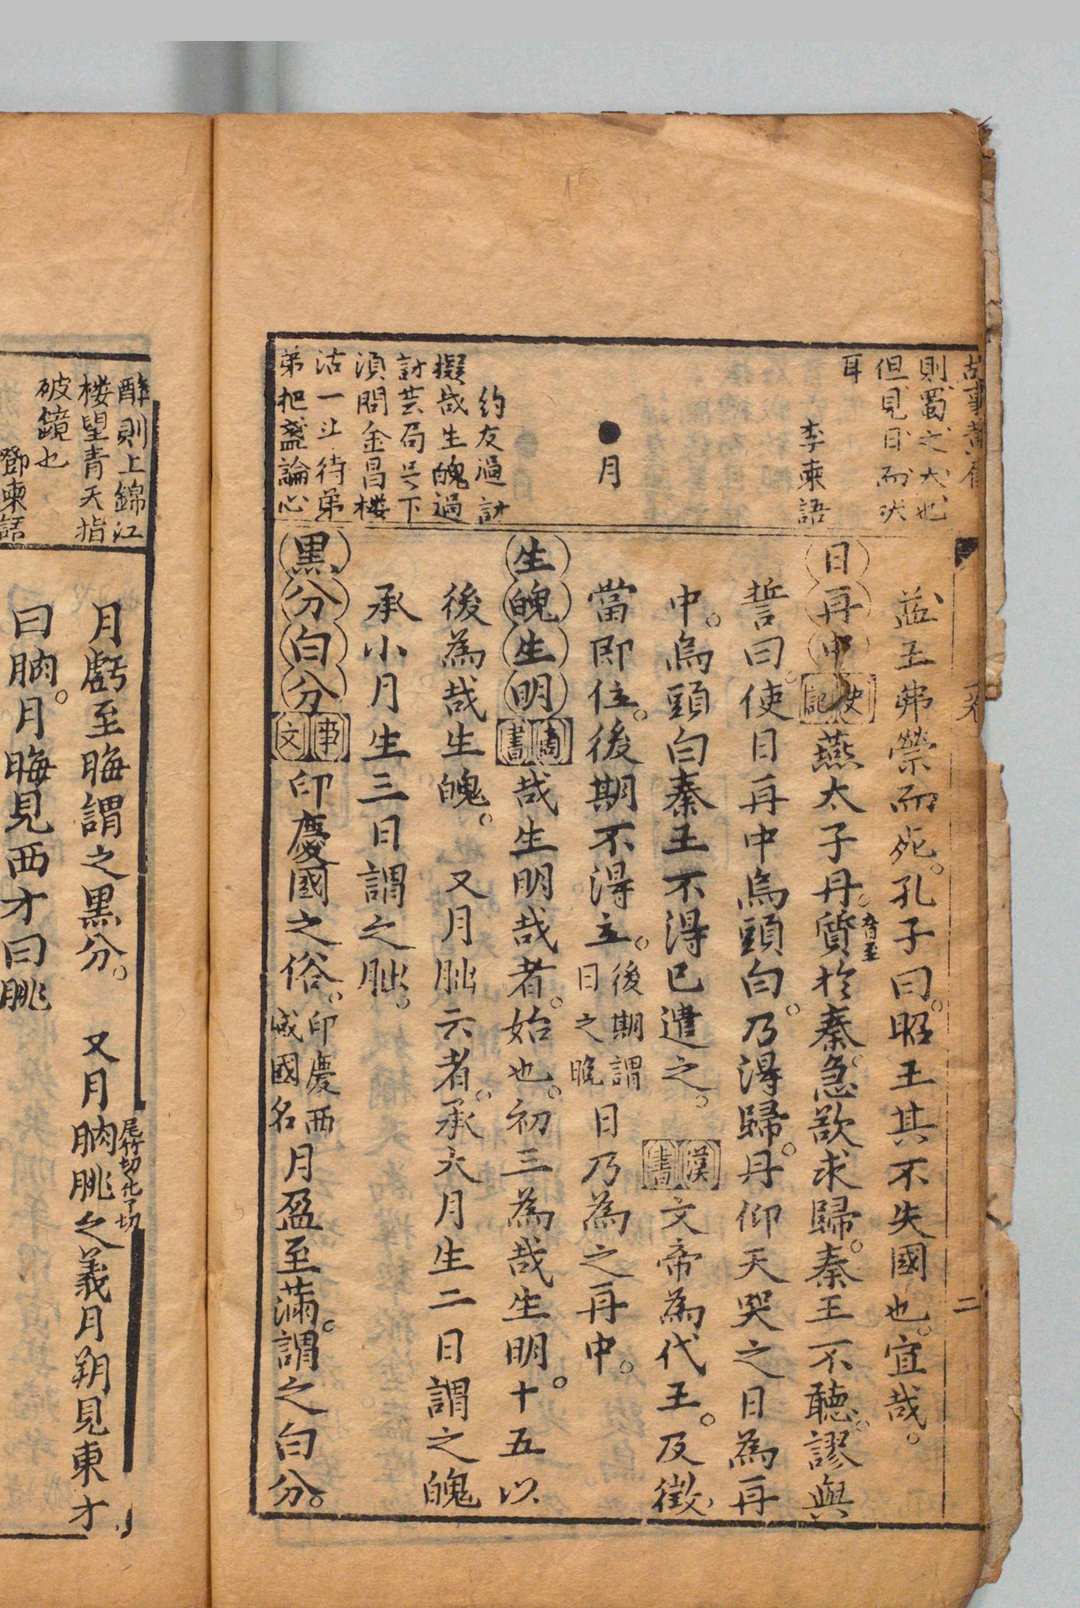 則蜀之犬也
但見日而吠
耳
李柬語
●月
約友過討
擬哉生魄過
討芸局只下
湏問金昌楼
沽一斗待弟
弟把盞論心
蓝王弗禜而死。孔子曰。昭王其不失國也。宜哉。
日再中 史記 燕太子丹。質音至於秦。急欲求歸。秦王不聽。謬與
誓曰。使日再中烏頭白。乃得歸。丹仰天哭之日為再
中。烏頭白秦王不得已遣之。 漢書 文帝為代王。及徵
當即位。後期不得立。後期謂日之晚日乃為之再中。
生魄生明 周書 哉生明哉者。始也。初三為哉生明。十五以
後為哉生魄。 又月朏云者。承大月生二日謂之魄
承小月生三日謂之朏。
黒分白分 事文 印慶國之俗。印慶西咸國名月盈至滿。謂之白分。
二
醉則上錦江
楼望青天指
破鏡也
鄧柬語
月虧至晦謂之黒分。 又月朒朓尾竹切。他了切之義月朔見東才
曰朒。月晦見西才曰朓